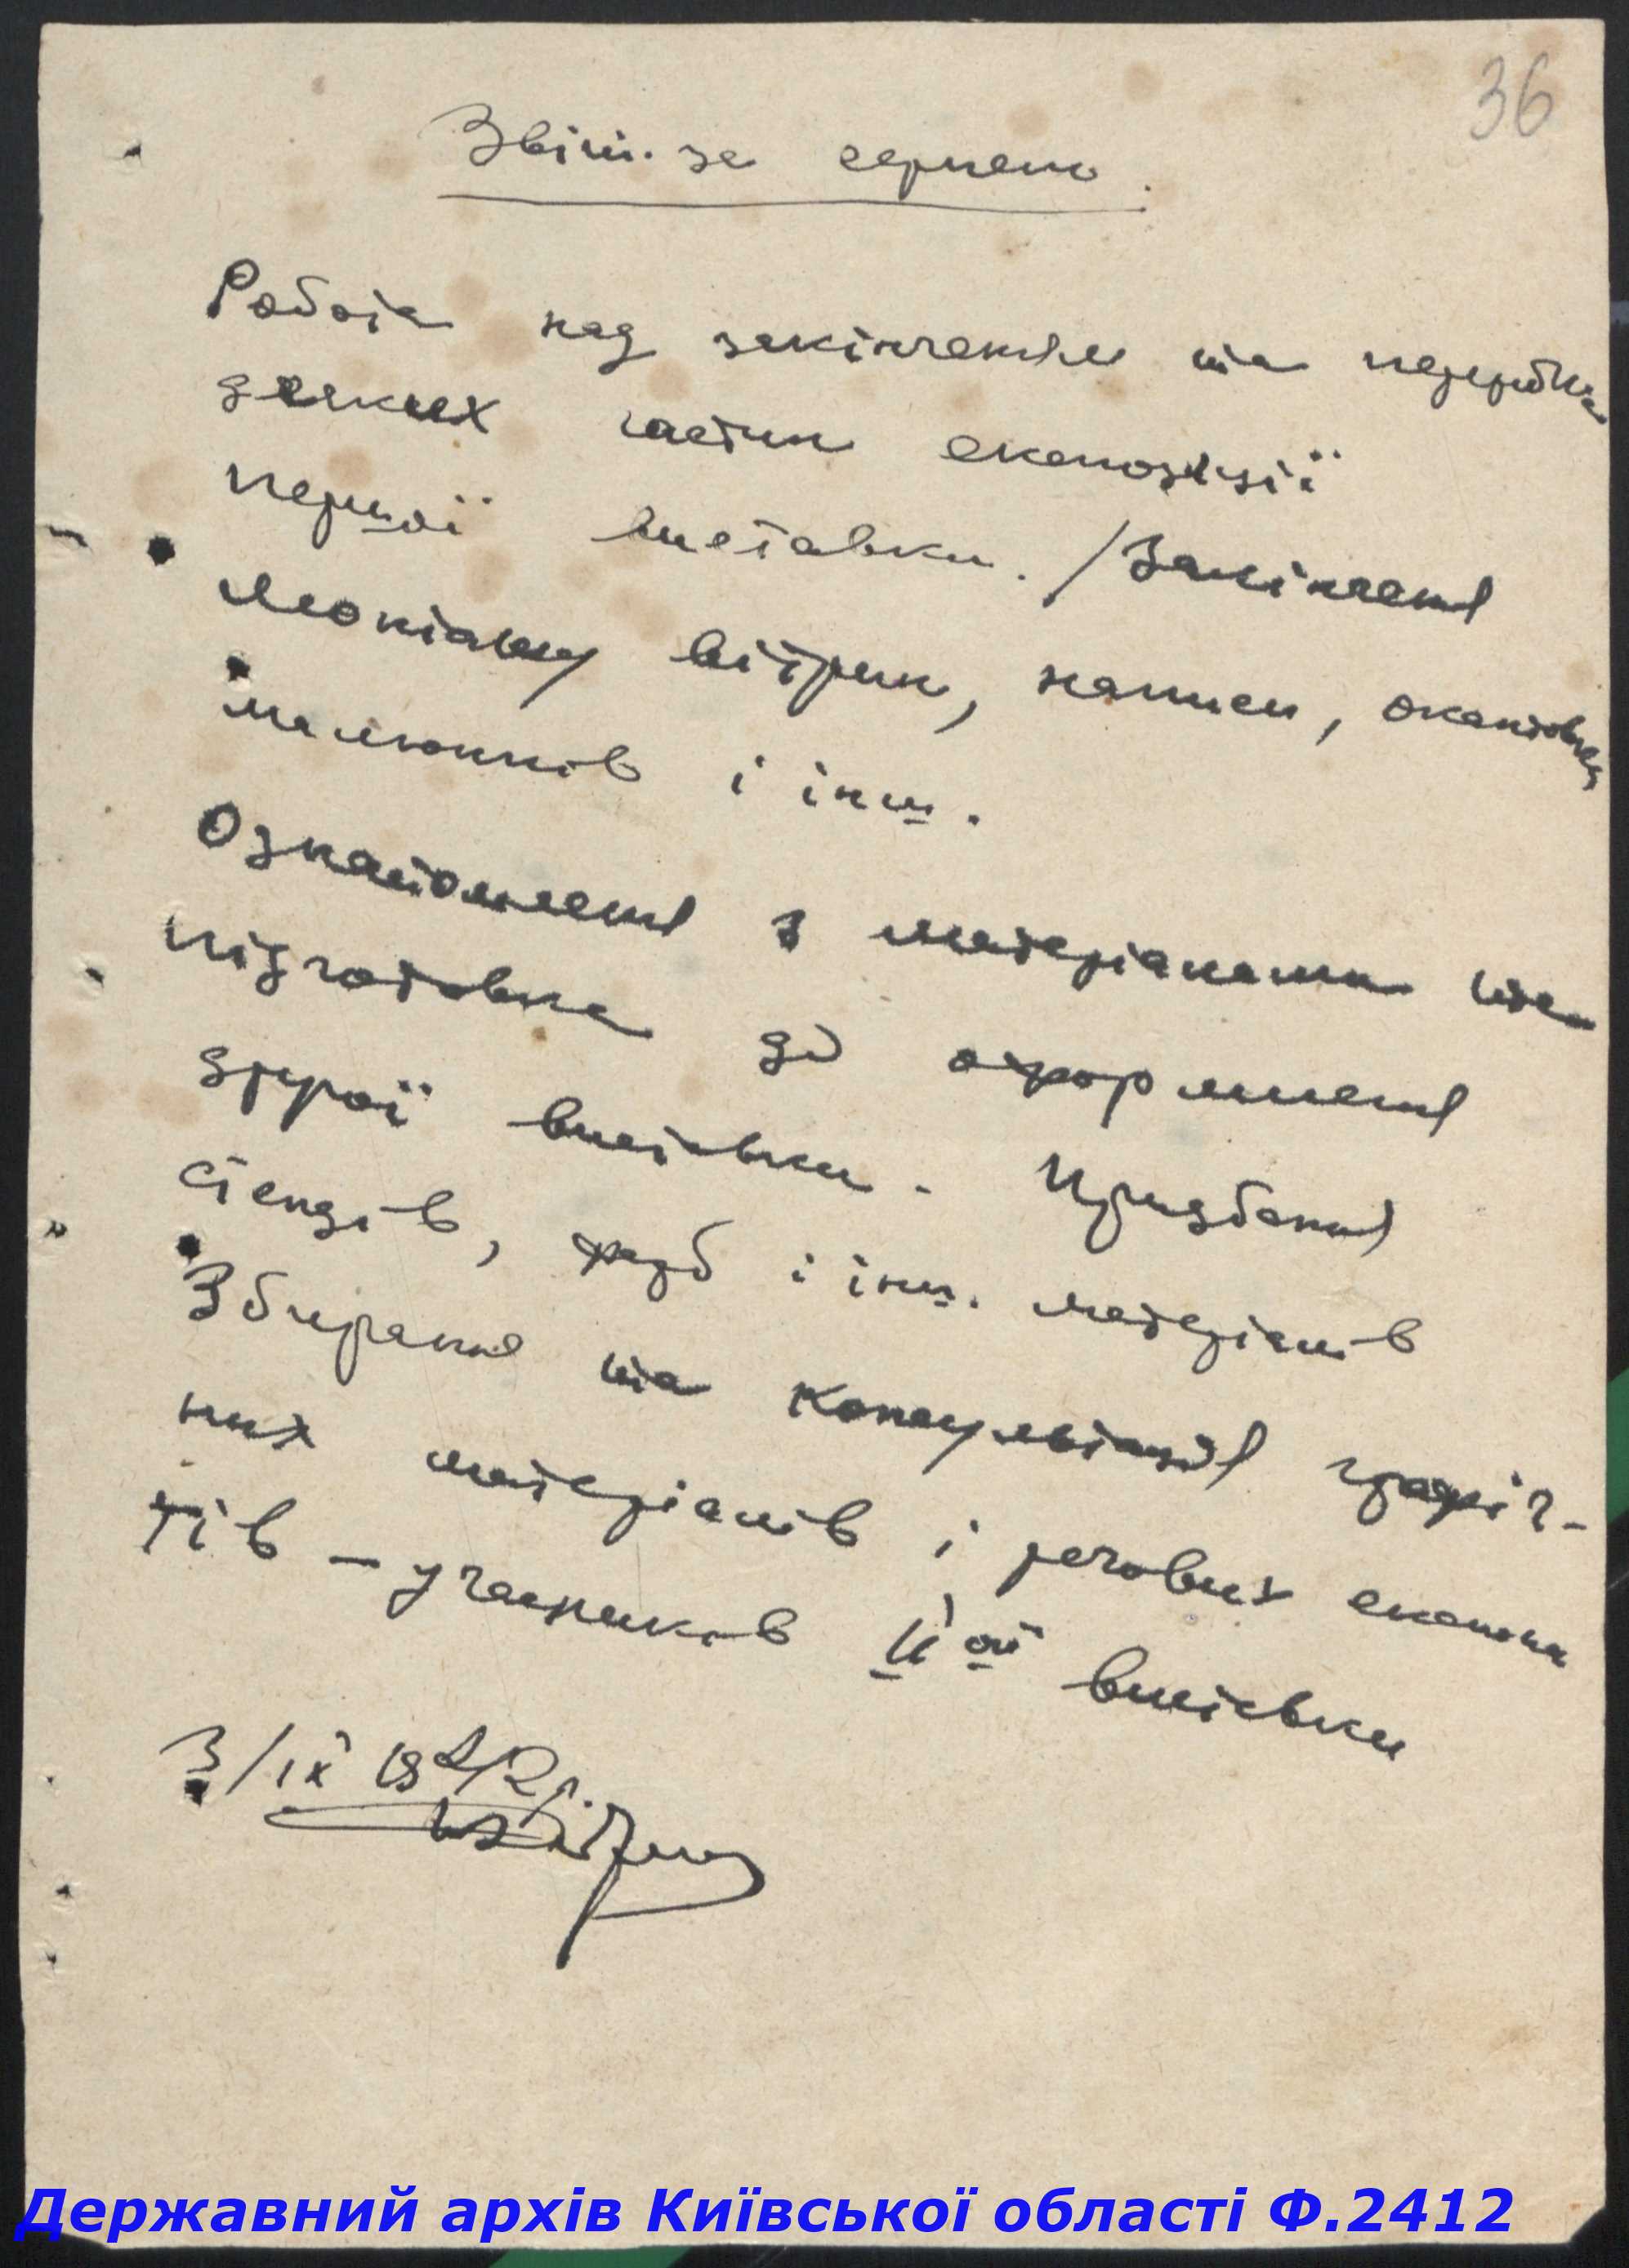 36
Звіт за серпень.
Робота над закінченням та переробка
деяких частин експозиції
першої виставки. /Закінченя
монтажу вітрин, написи, окантовка
малюнків і інш.
Ознайомленя з матеріалами та
підготовка до оформленя
другої виставки. Придбаня
стендів, фарб і інш. матеріалів
Збираня та консультації графіч-
них матеріалів і речових експона
тів – учасників ІІ ої виставки
3/IX 1942 р.
Державний архів Київської області Ф.2412